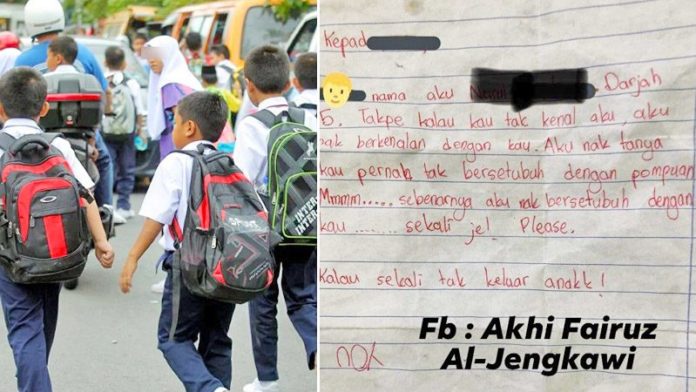 Kepad
nama aku Darjah
5. Takpe kalau kau tak kenal aku, aku
nak berkenalan dengan kau. Aku nak tanya
kau pernah tak bersetubuh dengan pompuan
Mmmm..... sebenarnya aku nak bersetubuh dengan
kau ........ sekali je! Please.
Kalau sekali tak keluar anakk!
Fb : Akhi Fairuz
Al-Jengkawi